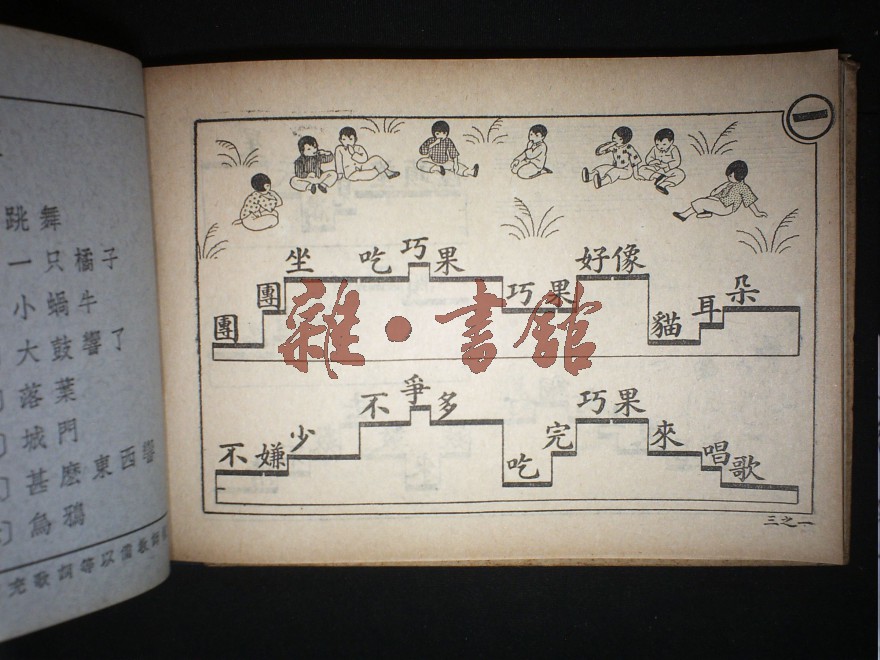 跳舞
一只橘子
小蝸牛
大鼓響了
落葉
城門
甚麼東西響
烏鴉
充歌詞等以備教師
一
團團坐吃巧果巧果好像貓耳朵
不嫌少不爭多吃完巧果來唱歌
三之一
雜·書館